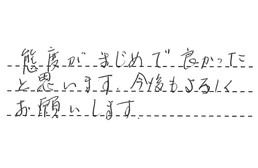 態度がまじめで良かった
と思います。今後もよろしく
お願いします